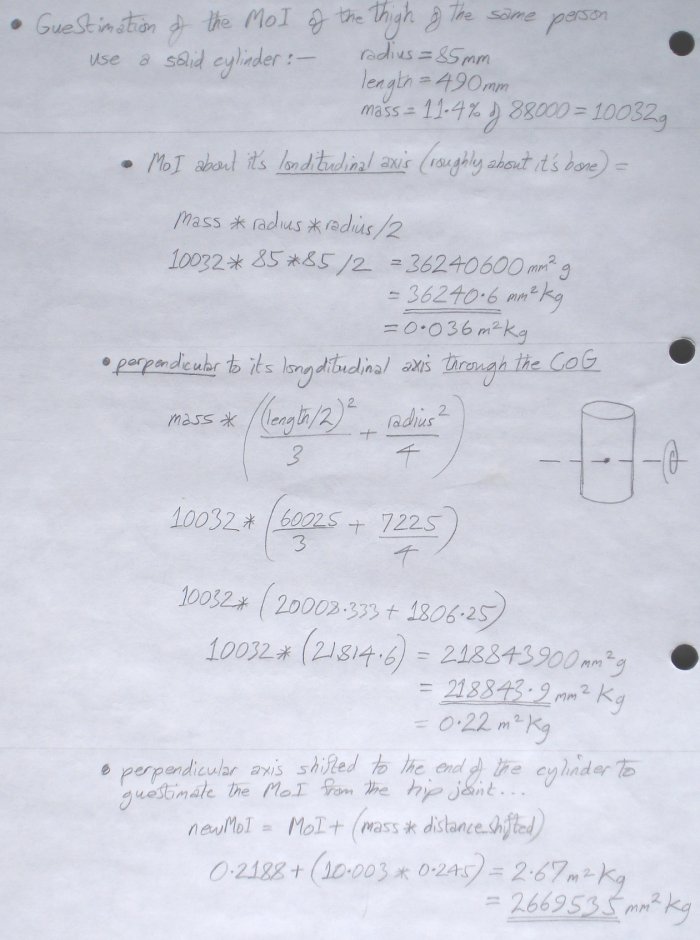 • Guestimation of the MoI of the thigh of the same person
use a solid cylinder:— radius = 85mm
length = 490mm
mass = 11.4% of 88000 = 10032g
• MoI about it's londitudinal axis (roughly about it's bone) =
mass * radius * radius/2
10032 * 85 * 85 /2 = 36240600 mm² g
= 36240.6 mm² kg
= 0.036 m² kg
• perpendicular to its longditudinal axis through the COG
mass * ((length/2)²/3 + radius²/4)
10032 * (60025/3 + 7225/4)
10032 * (20008.333 + 1806.25)
10032 * (21814.6) = 218843900 mm² g
= 218843.9 mm² Kg
= 0.22 m² Kg
• perpendicular axis shifted to the end of the cylinder to
guestimate the MoI from the hip joint...
newMoI = MoI + (mass * distance shifted)
0.2188 + (10.003 * 0.245) = 2.67 m² Kg
= 2669535 mm² kg